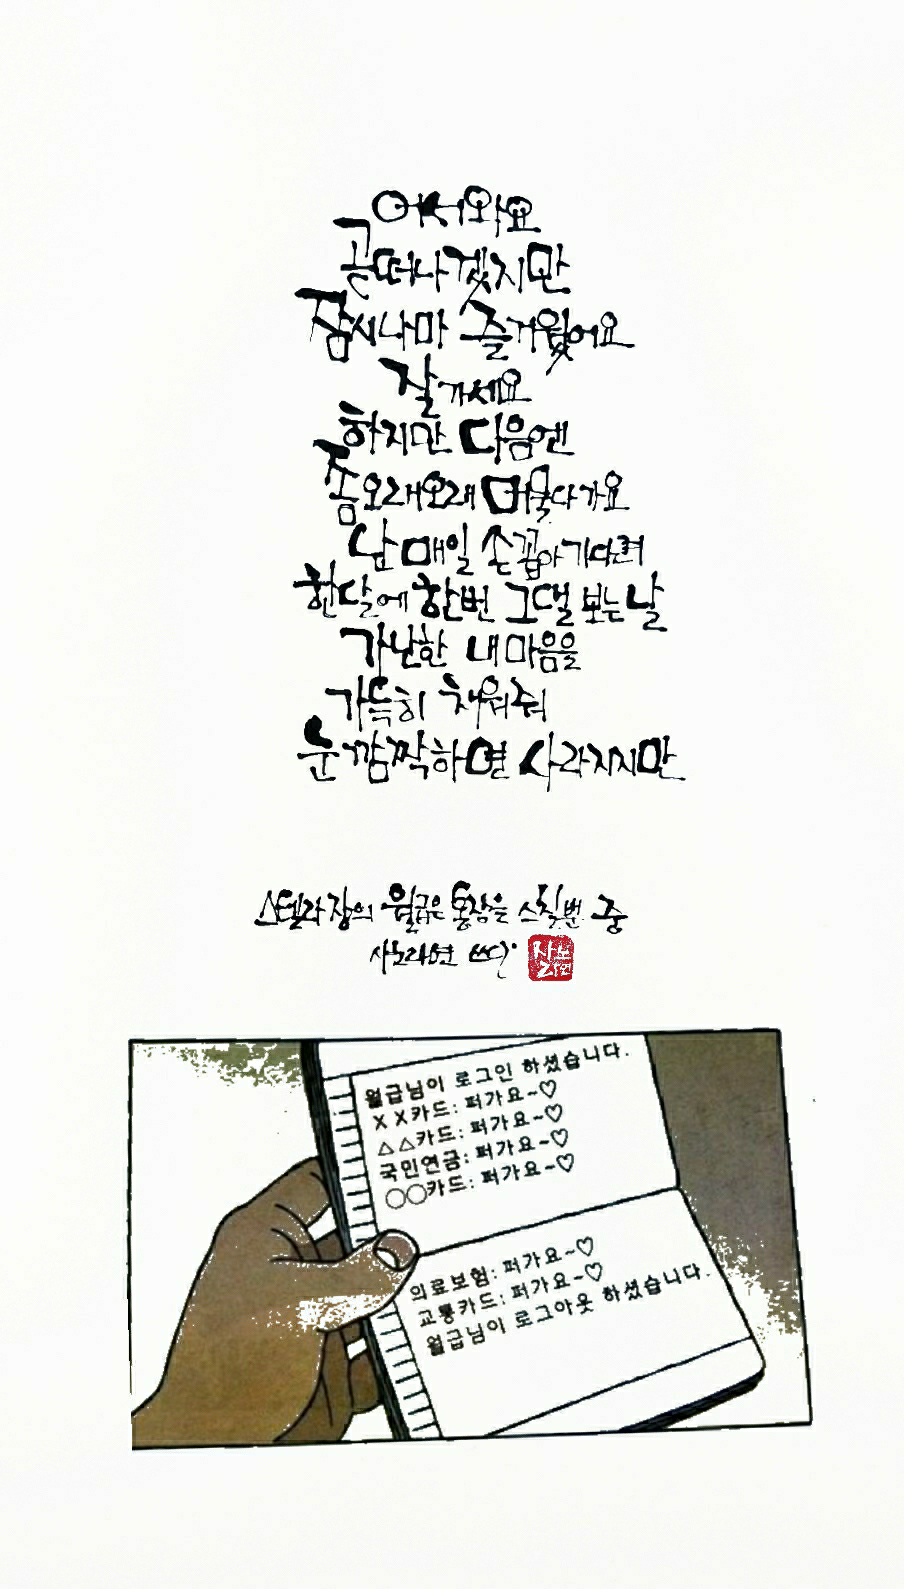 어서와요
곧떠나겠지만
잠시나마 즐거웠어요
잘가세요
하지만 다음엔
좀오래오래 머물다가요
난 매일 손꼽아기다려
한달에 한번 그댈 보는날
가난한 내마음을
가득히 채워줘
눈깜짝하면 사라지지만
스텔라장의 월급은 통장을 스칠뿐 중
사노라면 쓰다
월급님이 로그인 하셨습니다.
X X카드: 퍼가요~♡
△△카드: 퍼가요~♡
국민연금: 퍼가요~♡
○○카드: 퍼가요~♡
의료보험: 퍼가요~♡
교통카드: 퍼가요~♡
월급님이 로그아웃 하셨습니다.